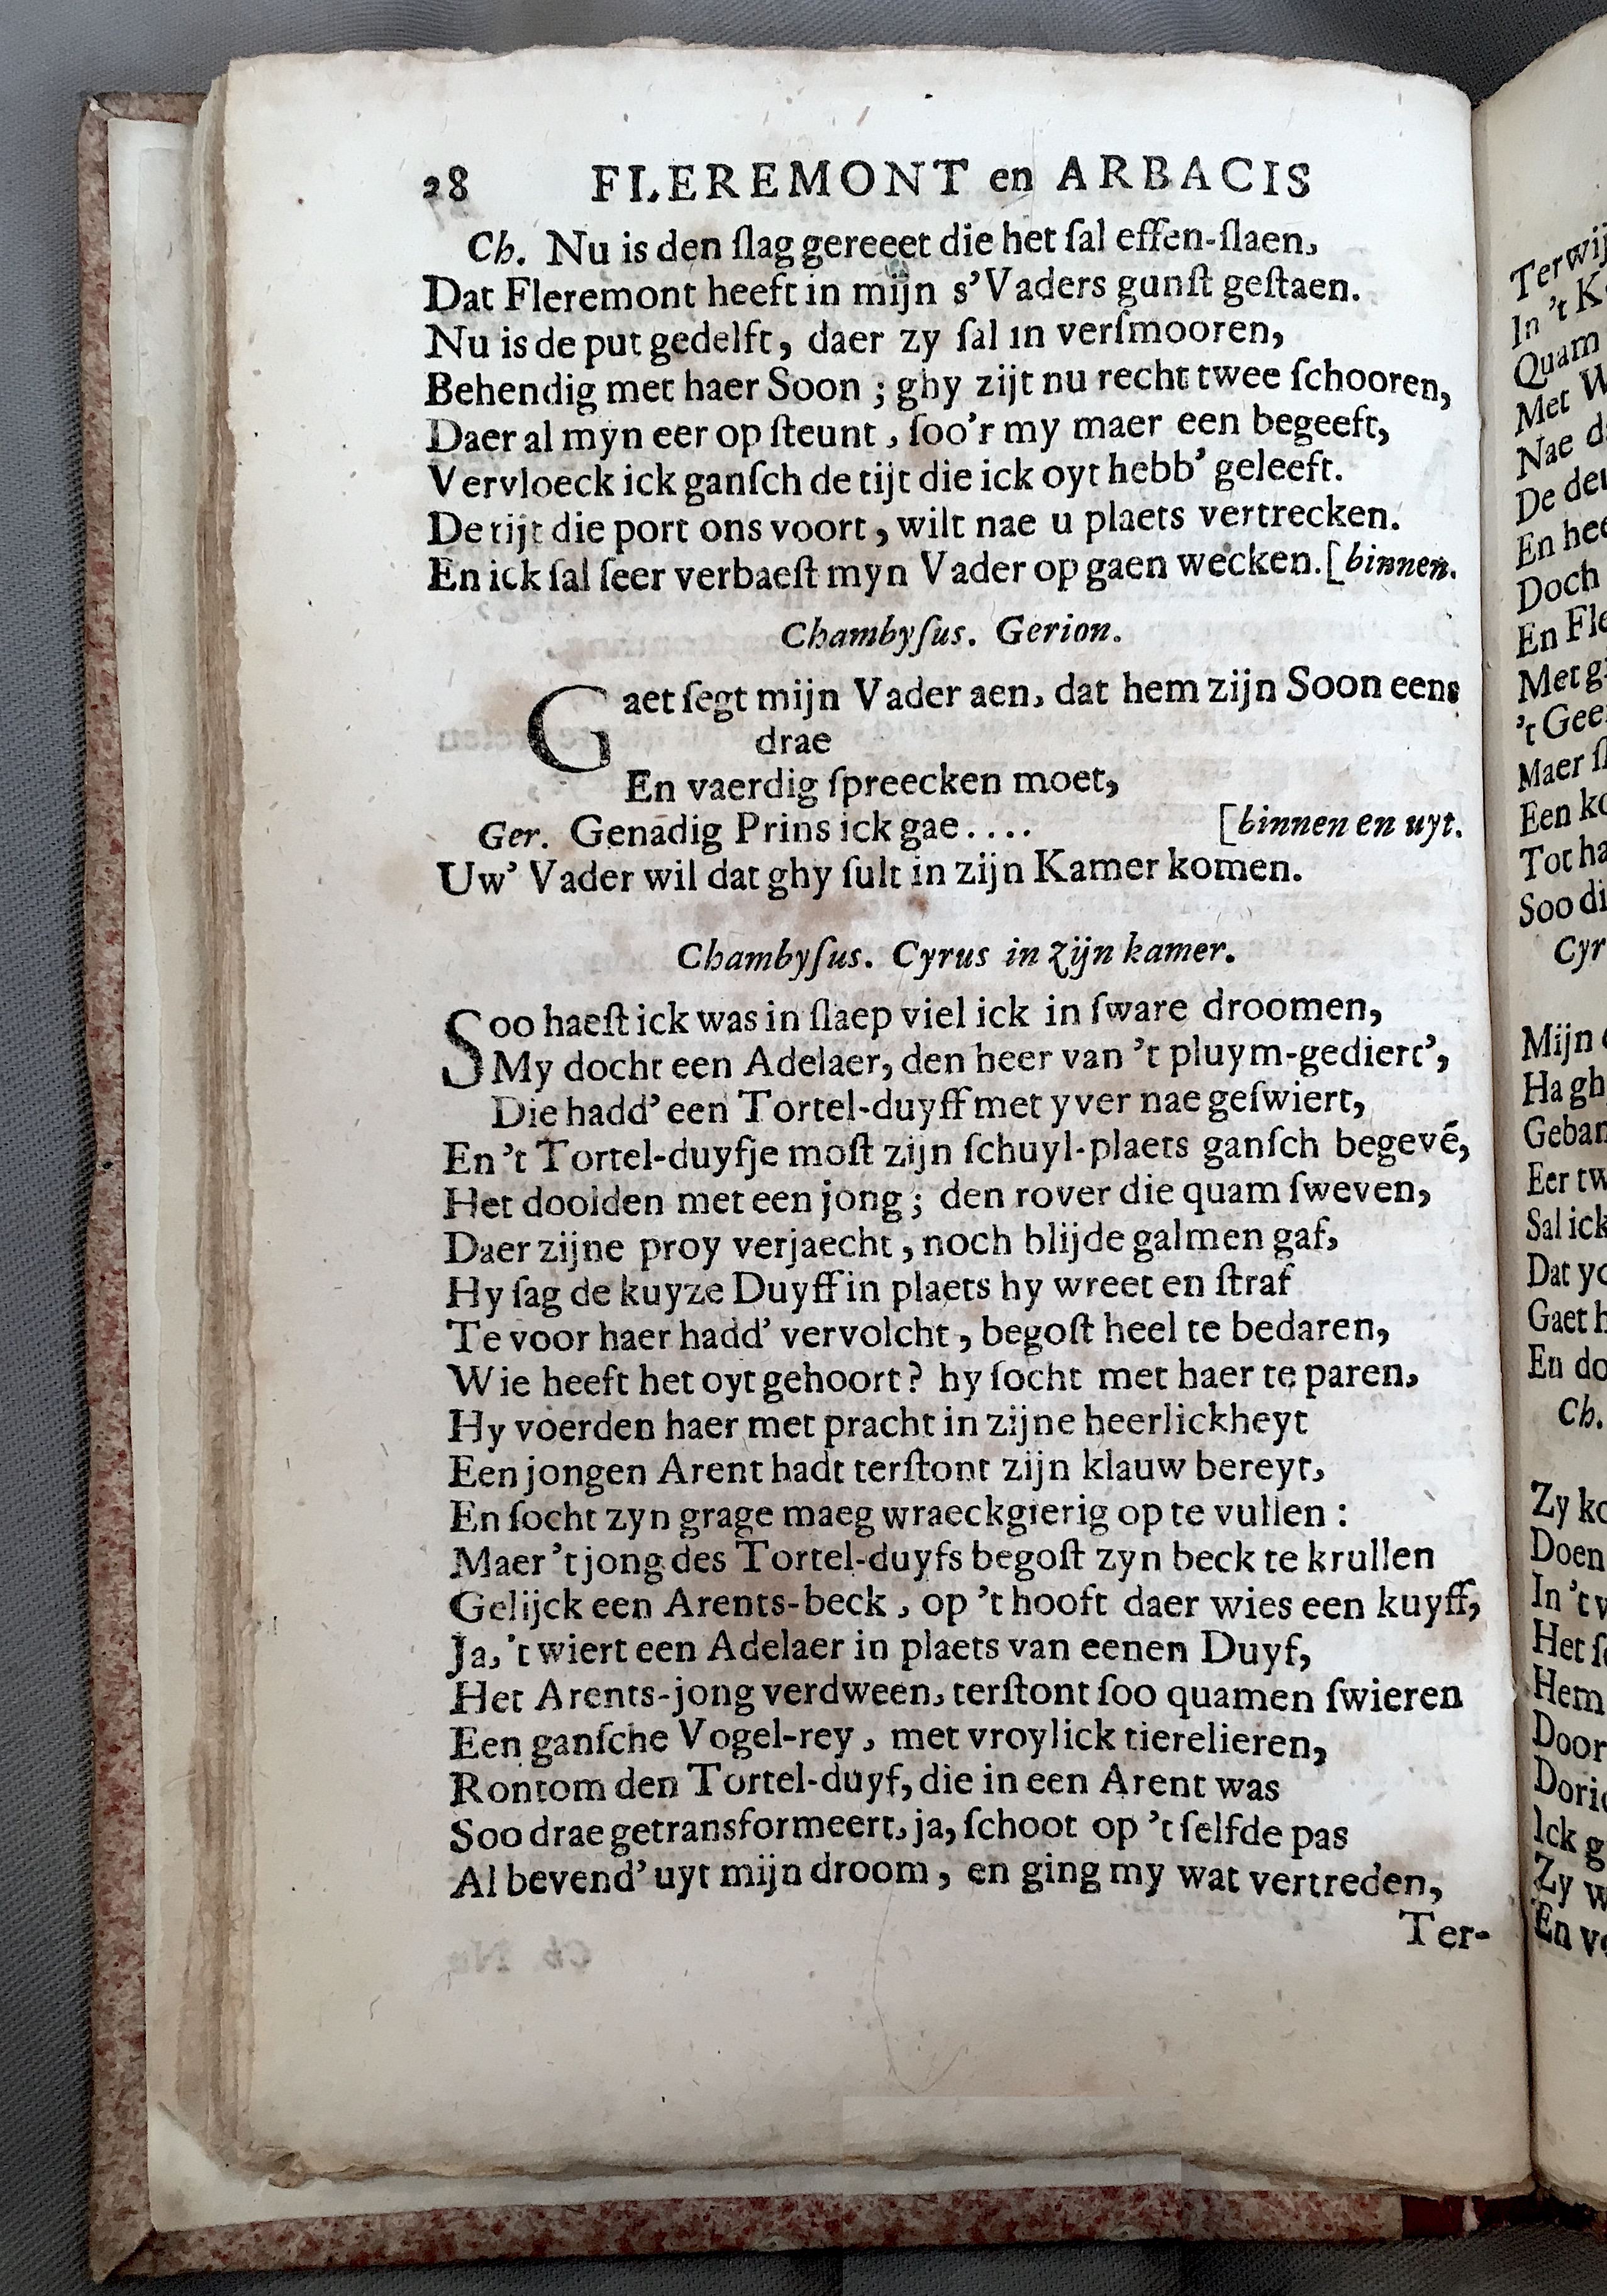 28 FLEREMONT en ARBACIS
Ch. Nu is den ſlag gereeet die het ſal effen-ſlaen,
Dat Fleremont heeft in mijn s'Vaders gunſt geſtaen.
Nu is de put gedelft, daer zy ſal in verſmooren,
Behendig met haer Soon ; ghy zijt nu recht twee ſchooren,
Daer al myn eer op ſteunt, ſoo'r my maer een begeeft,
Vervloeck ick ganſch de tijt die ick oyt hebb' geleeft.
De tijt die port ons voort, wilt nae u plaets vertrecken.
En ick ſal ſeer verbaeſt myn Vader op gaen wecken. [binnen.
Chambyſus. Gerion.
Gaet ſegt mijn Vader aen, dat hem zijn Soon eens
drae
En vaerdig ſpreecken moet,
Ger. Genadig Prins ick gae.... [binnen en uyt.
Uw' Vader wil dat ghy ſult in zijn Kamer komen.
Chambyſus. Cyrus in zijn kamer.
Soo haeſt ick was in ſlaep viel ick in ſware droomen,
My docht een Adelaer, den heer van 't pluym-gediert',
Die hadd' een Tortel-duyff met yver nae geſwiert,
En 't Tortel-duyfje moſt zijn ſchuyl-plaets ganſch begevē,
Het doolden met een jong ; den rover die quam ſweven,
Daer zijne proy verjaecht, noch blijde galmen gaf,
Hy ſag de kuyze Duyff in plaets hy wreet en ſtraf
Te voor haer hadd' vervolcht, begoſt heel te bedaren,
Wie heeft het oyt gehoort? hy ſocht met haer te paren,
Hy voerden haer met pracht in zijne heerlickheyt
Een jongen Arent hadt terſtont zijn klauw bereyt,
En ſocht zyn grage maeg wraeckgierig op te vullen :
Maer 't jong des Tortel-duyfs begoſt zyn beck te krullen
Gelijck een Arents-beck, op 't hooft daer wies een kuyff,
Ja, 't wiert een Adelaer in plaets van eenen Duyf,
Het Arents-jong verdween, terſtont ſoo quamen ſwieren
Een ganſche Vogel-rey, met vroylick tierelieren,
Rontom den Tortel-duyf, die in een Arent was
Soo drae getransformeert, ja, ſchoot op 't ſelfde pas
Al bevend' uyt mijn droom, en ging my wat vertreden,
Ter-
Terwij
In 't K
Quam
Met W
Nae d
De deu
En hee
Doch
En Fle
Met g
't Gee
Maer ſl
Een ko
Tot ha
Soo di
Cyr
Mijn
Ha gh
Geban
Eer tw
Sal ick
Dat yo
Gaet h
En do
Ch.
Zy ko
Doen
In 't v
Het ſ
Hem
Door
Dori
Ick g
Zy w
En v